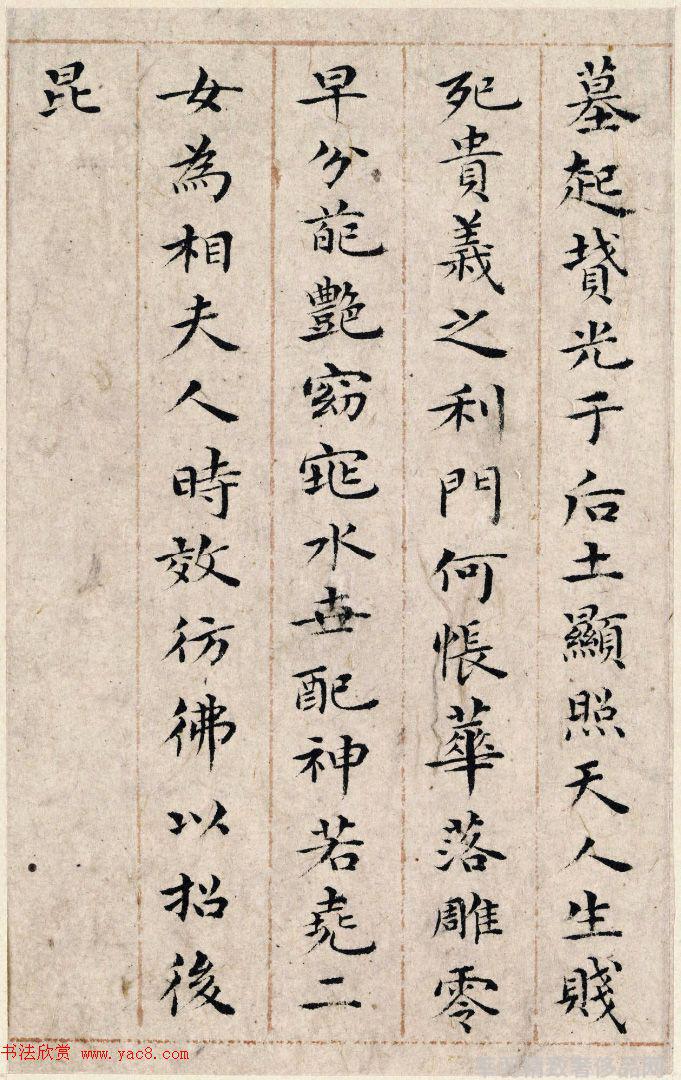 墓起墳光于后土顯照天人生賤
死貴義之利門何悵華落雕零
早分葩艷窈窕水世配神若堯二
女為相夫人時效彷彿以招後
昆
书法欣赏 www.yac8.com